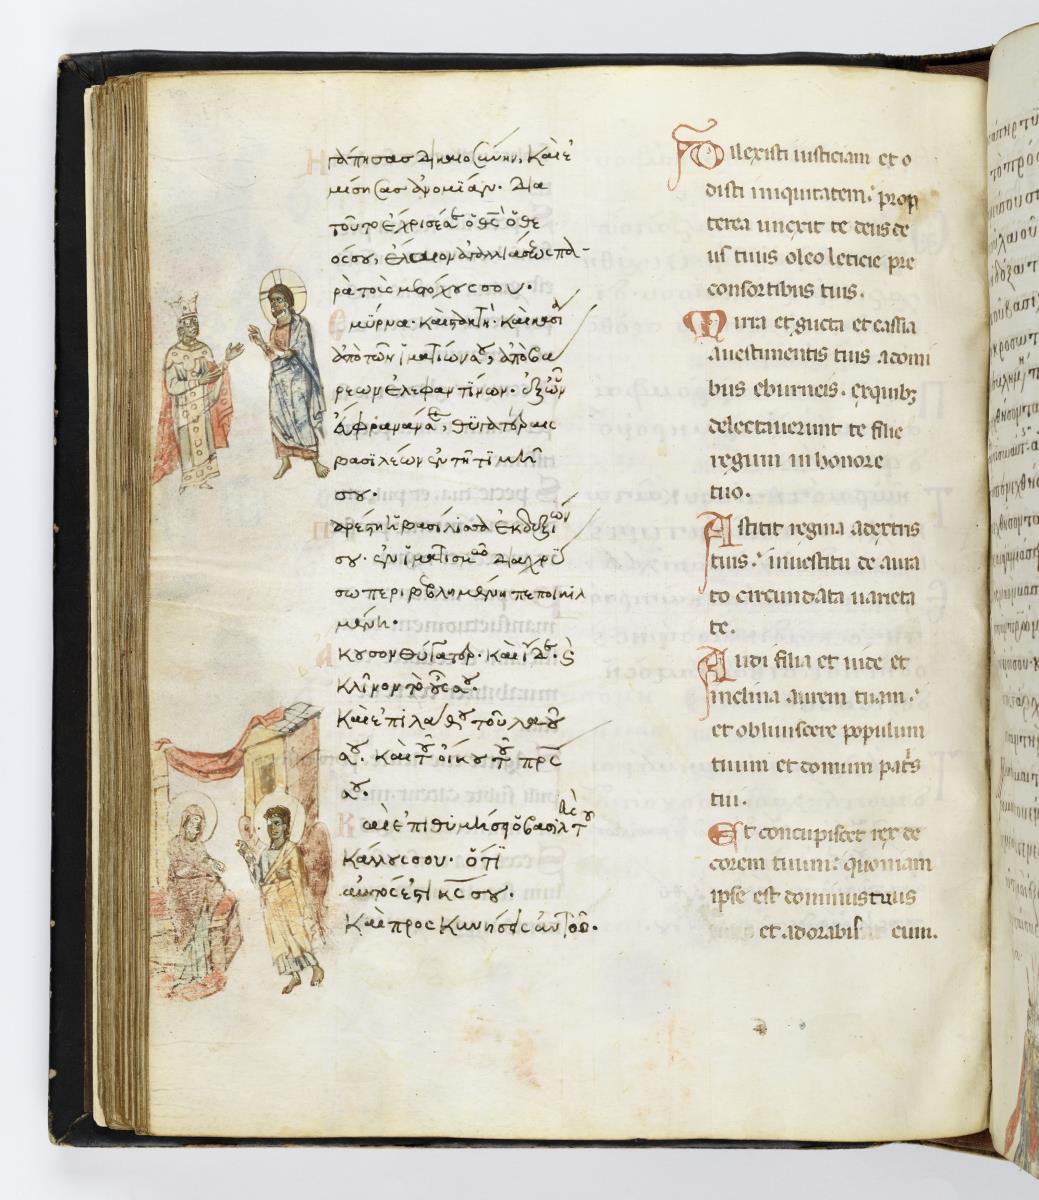 γάπησας δικαιοσύνην, καὶ ἐ
μίσησας ἀνομίαν. δια
τοῦτο ἔχρισέ σε ὁ θς ὁ θε
ός σου, ἔλαιον ἀγαλλιάσεως παρ
ρὰ τοὺς μετόχους σου.
μύρνα καὶ στακτὴ καὶ κασία
ἀπὸ τῶν ἱματίων σου, ἀπὸ βα
ρεων ἐλεφαντίνων. ἐξ ὧν
ηὔφρανάν σε, θυγατέρες
βασιλέων ἐν τῇ τιμῇ
σου.
παρέστη ἡ βασίλισσα ἐκ δεξιῶν
σου. ἐν ἱματισμῷ διαχρύ
σω περιβεβλημένη πεποικιλ
μένη.
κουσον θύγατερ. καὶ ἴδε. καὶ
κλῖνον τὸ οὖς σου.
καὶ ἐπιλάθου τοῦ λαοῦ
σου. καὶ τοῦ οἴκου τοῦ πρς
σου.
καὶ ἐπιθυμήσει ὁ βασιλεὺς τοῦ
κάλλους σου. ὅτι
αὐτός ἐστι κς σου.
καὶ προσκυνήσεις αὐτῶ.
Dilexisti iusticiam et o
disti iniquitatem: prop
terea unxit te deus de
us tuus oleo leticie pre
consortibus tuis.
Mirra et gucta et cassia
a uestimentis tuis a domi
bus eburneis. exquibꝫ
delectauerunt te filie
regum in honore
tuo.
Astitit regina adextris
tuis: in uestitu de aura
to circundata uarieta
te.
Audi filia et uide et
inclina aurem tuam:
et obliuiscere populum
tuum et domum patris
tui.
Et concupiscet rex de
corem tuum: quoniam
ipse est dominus tuus
et adorabis eum.